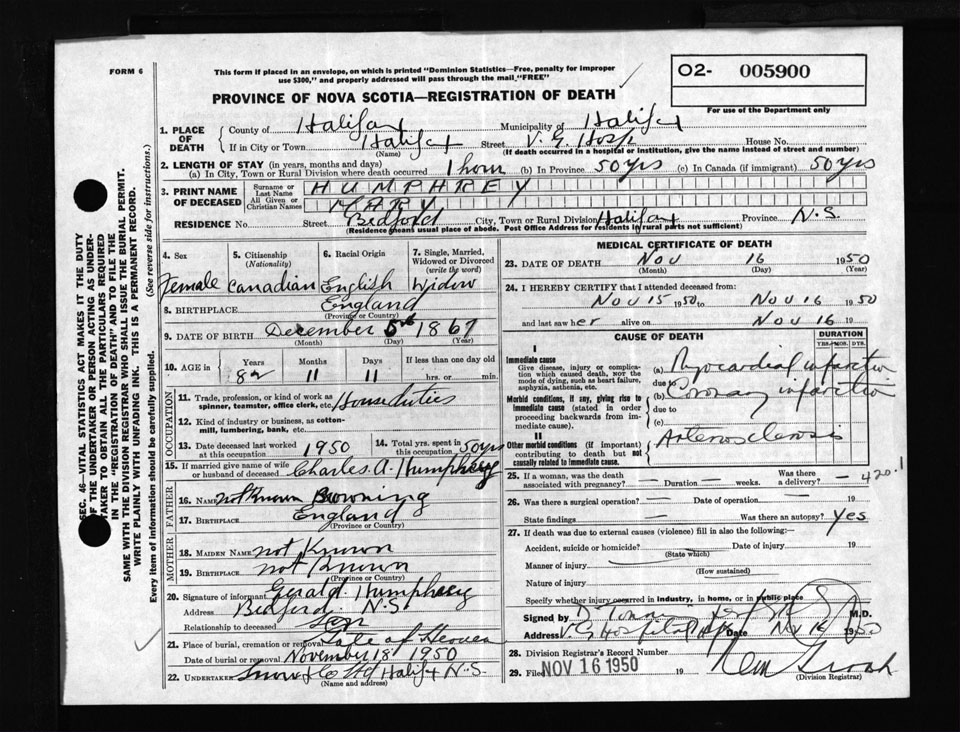 FORM 6
This form if placed in an envelope, on which is printed "Dominion Statistics—Free, penalty for improper
use $300," and properly addressed will pass through the mail "FREE"
O2- 005900
For use of the Department only
PROVINCE OF NOVA SCOTIA—REGISTRATION OF DEATH
1. PLACE OF DEATH { County of Halifax Municipality of Halifax
If in City or Town Halifax Street V. G. Hosp House No.
(Name) (If death occurred in a hospital or institution, give the name instead of street and number)
2. LENGTH OF STAY (in years, months and days)
(a) In City, Town or Rural Division where death occurred 1 hour (b) In Province 50 yrs (c) In Canada (if immigrant) 50 yrs
3. PRINT NAME OF DECEASED { Surname or Last Name HUMPHREY
All Given or Christian Names MARY
RESIDENCE No. Street Bedford City, Town or Rural Division Halifax Province N.S.
(Residence means usual place of abode. Post Office Address for residents in rural parts not sufficient)
4. Sex Female
5. Citizenship (Nationality) Canadian
6. Racial Origin English
7. Single, Married, Widowed or Divorced (write the word) Widow
8. BIRTHPLACE England
(Province or Country)
9. DATE OF BIRTH December 5th 1867
(Month) (Day) (Year)
10. AGE in { Years 82 Months 11 Days 11 If less than one day old
hrs. or min.
OCCUPATION
11. Trade, profession, or kind of work as spinner, teamster, office clerk, etc. House duties
12. Kind of industry or business, as cotton-mill, lumbering, bank, etc.
13. Date deceased last worked at this occupation 1950
14. Total yrs. spent in this occupation 50 yrs
15. If married give name of wife or husband of deceased Charles A. Humphrey
FATHER
16. Name not Known Browning
17. Birthplace England
(Province or Country)
MOTHER
18. Maiden Name not Known
19. Birthplace not Known
(Province or Country)
20. Signature of informant Gerald Humphrey
Address Bedford N.S.
Relationship to deceased Son
21. Place of burial, cremation or removal Gate of Heaven
Date of burial or removal November 18 1950
22. Undertaker Snow & Co Ltd Halifax N.S.
(Name and address)
MEDICAL CERTIFICATE OF DEATH
23. DATE OF DEATH Nov 16 1950
(Month) (Day) (Year)
24. I HEREBY CERTIFY that I attended deceased from:
Nov 15 1950 to Nov 16 1950
and last saw her alive on Nov 16 19
CAUSE OF DEATH
DURATION
YRS. MOS. DYS.
I
Immediate cause
Give disease, injury or complication which caused death, not the mode of dying, such as heart failure, asphyxia, asthenia, etc.
(a) Myocardial infarction
due to
Morbid conditions, if any, giving rise to immediate cause (stated in order proceeding backwards from immediate cause).
(b) Coronary infarction
due to
(c)
II
Other morbid conditions (if important) contributing to death but not causally related to immediate cause.
Arteriosclerosis
25. If a woman, was the death associated with pregnancy? — Duration — weeks. Was there a delivery? — 420.1
26. Was there a surgical operation? — Date of operation — 19
State findings — Was there an autopsy? Yes
27. If death was due to external causes (violence) fill in also the following:—
Accident, suicide or homicide? Date of injury 19
(State which)
Manner of injury
(How sustained)
Nature of injury
Specify whether injury occurred in industry, in home, or in public place
Signed by M.D.
Address V. G. Hospital Hfx Date Nov 16 1950
28. Division Registrar's Record Number
29. Filed NOV 16 1950 19
(Division Registrar)
SEC. 46—VITAL STATISTICS ACT MAKES IT THE DUTY
OF THE UNDERTAKER OR PERSON ACTING AS UNDER-
TAKER TO OBTAIN ALL THE PARTICULARS REQUIRED
IN THE "REGISTRATION OF DEATH" AND TO FILE THE
SAME WITH THE DIVISION REGISTRAR WHO SHALL ISSUE THE BURIAL PERMIT.
WRITE PLAINLY WITH UNFADING INK. THIS IS A PERMANENT RECORD.
Every item of information should be carefully supplied. (See reverse side for instructions.)